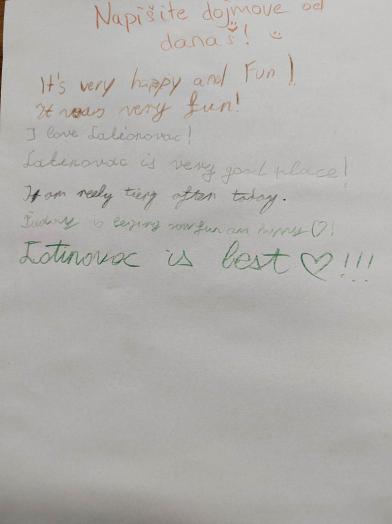 Napišite dojmove od
današ! :)
It's very happy and Fun!
It was very fun!
I love Latinovac!
Latinovac is very good place!
I am reely tierg after today.
Today is
Latinovac is best ♡!!!